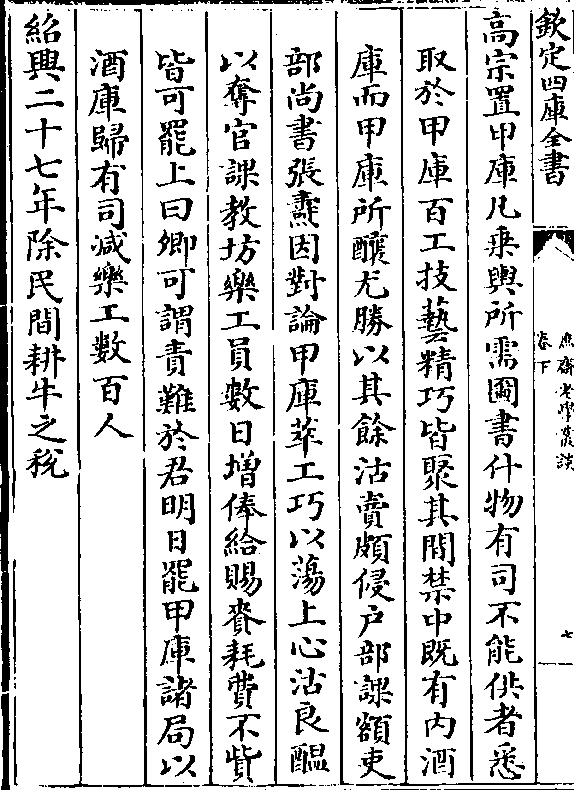 欽定四庫全書
庶齋老學叢談
卷下
七
高宗置甲庫凡乘輿所需圖書什物有司不能供者悉
取於甲庫百工技藝精巧皆聚其間禁中既有内酒
庫而甲庫所釀尤勝以其餘沽賣頗侵户部課額吏
部尚書張燾因對論甲庫萃工巧以蕩上心沽良醖
以奪官課教坊樂工員數日增俸給賜賚耗費不貲
皆可罷上曰卿可謂責難於君明日罷甲庫諸局以
酒庫歸有司减樂工數百人
紹興二十七年除民間耕牛之稅